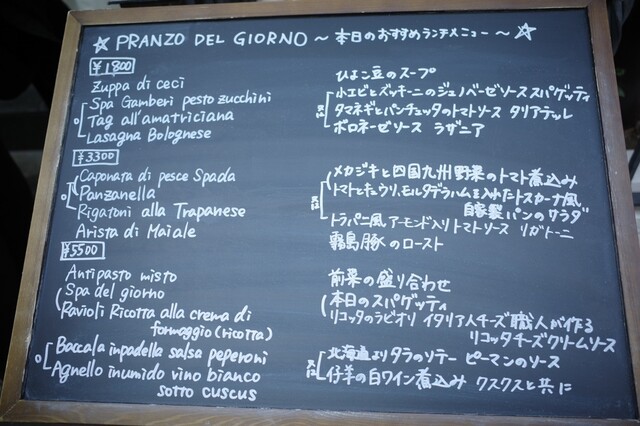 ☆ PRANZO DEL GIORNO ～ 本日のおすすめランチメニュー ～ ☆
¥1800
Zuppa di ceci
ひよこ豆のスープ
Spa Gamberi pesto zucchini
小エビとズッキーニのジェノベーゼソーススパゲッティ
Tag all'amatriciana
又は
タマネギとパンチェッタのトマトソース タリアテッレ
Lasagna Bolognese
ボロネーゼソース ラザニア
¥3300
Caponata di pesce Spada
メカジキと四国九州野菜のトマト煮込み
Panzanella
又は
トマトとキュウリ、モルタデラハムを入れたトスカーナ風
自家製パンのサラダ
Rigatoni alla Trapanese
トラパニ風 アーモンド入りトマトソース リガトーニ
Arista di Maiale
霧島豚のロースト
¥5500
Antipasto misto
前菜の盛り合わせ
Spa del giorno
本日のスパゲッティ
Ravioli Ricotta alla crema di
formaggio (ricotta)
リコッタのラビオリ イタリア人チーズ職人が作る
リコッタチーズクリームソース
Baccala inpadella salsa peperoni
北海道よりタラのソテー ピーマンのソース
Agnello inumido vino bianco
sotto cuscus
又は
仔羊の白ワイン煮込み クスクスと共に